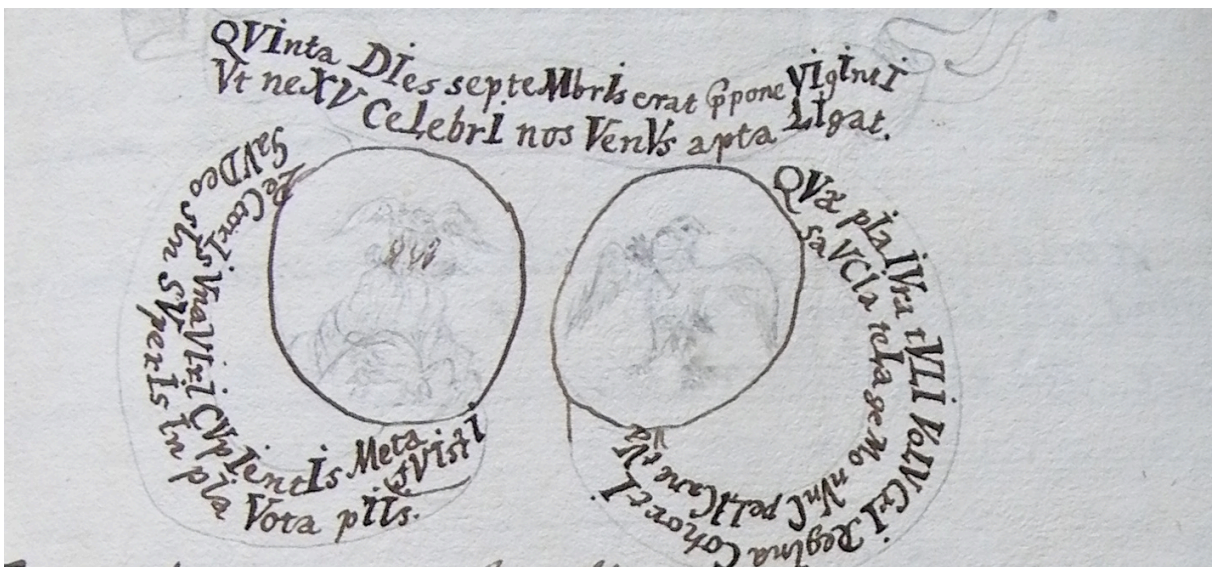 QVInta DIes septeMbrIs erat VIgIntI
Vt neXV CeLebrI nos VenVs apta LIgat.
GaVDeo SVperIs In pIa Vota pIIs.
CVpIentIs Meta fVIstI
QVæ pIa IVra tVLI VoLVCrI RegIna CohortI
saVCIa teLa geMo nVnC peLICane tVa